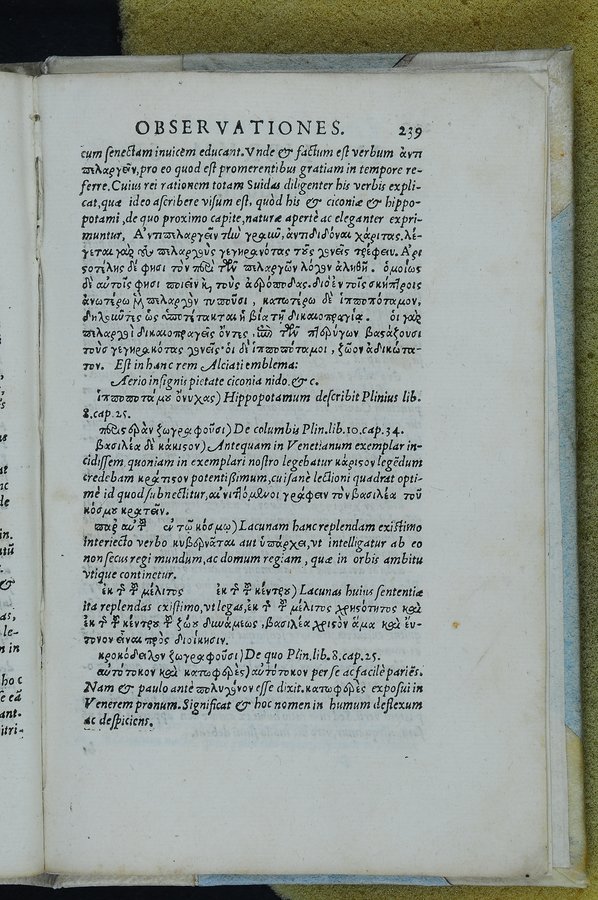 OBSERVATIONES. 239
cum senectam inuicem educant. Vnde & factum est verbum ἀντι
πελαργεῖν, pro eo quod est promerentibus gratiam in tempore re-
ferre. Cuius rei rationem totam Suidas diligenter his verbis expli-
cat, quæ ideo ascribere visum est, quòd his & ciconiæ & hippo-
potami, de quo proximo capite, naturæ apertè ac eleganter expri-
muntur, Ἀντιπελαργεῖν τὴν γραῦν, ἀντιδιδόναι χάριτας. λέ-
γεται γὰρ τοὺς πελαργοὺς γεγηρακότας τοὺς γονεῖς τρέφειν. Ἀρι
ςοτέλης δέ φησι τὸν περὶ τῶν πελαργῶν λόγον ἀληθῆ. ὁμοίως
δὲ αὐτοῖς φησι ποιεῖν καὶ τοὺς ἀερόποδας. διὸ ἐν τοῖς σκήπτροις
ἀνωτέρω μὲν πελαργὸν τυποῦσι, κατωτέρω δὲ ἱπποπόταμον,
δηλοῦντες ὡς ὑποτέτακται ἡ βία τῇ δικαιοπραγίᾳ. οἱ γὰρ
πελαργοὶ δικαιοπραγεῖς ὄντες, ἐπὶ τῶν πτερύγων βαςάζουσι
τοὺς γεγηρακότας γονεῖς· οἱ δὲ ἱπποπόταμοι, ζῶον ἀδικώτα-
τον. Est in hanc rem Alciati emblema:
Aerio insignis pietate ciconia nido, & c.
ἱπποποτάμου ὄνυχας) Hippopotamum describit Plinius lib.
8. cap. 25.
περιςερὰν ζωγραφοῦσι) De columbis Plin. lib. 10. cap. 34.
βασιλέα δὲ κάκιςον) Antequam in Venetianum exemplar in-
cidissem, quoniam in exemplari nostro legebatur κάριςον legēdum
credebam κράτιςον potentißimum, cui sanè lectioni quadrat opti-
mè id quod subnectitur, αἰνιττόμενοι γράφειν τὸν βασιλέα τοῦ
κόσμου κρατεῖν.
παρ' αὐτ ἐν τῷ κόσμῳ) Lacunam hanc replendam existimo
interiecto verbo κυβερνᾶται aut ὑπάρχει, vt intelligatur ab eo
non secus regi mundum, ac domum regiam, quæ in orbis ambitu
vtique continetur.
ἐκ τ τ μέλιτος ἐκ τ τ κέντρου) Lacunas huius sententiæ
ita replendas existimo, vt legas, ἐκ τ τ μέλιτος χρηςότητος καὶ
ἐκ τ τ κέντρου τ ζώου δυνάμεως, βασιλέα χρηςὸν ἅμα καὶ εὔ-
τονον εἶναι πρὸς διοίκησιν.
κροκόδειλον ζωγραφοῦσι) De quo Plin. lib. 8. cap. 25.
αὐτότοκον καὶ κατωφερὲς) αὐτότοκον per se ac facilè pariēs.
Nam & paulo antè πολυγόνον esse dixit. κατωφερὲς exposui in
Venerem pronum. Significat & hoc nomen in humum deflexum
ac despiciens.